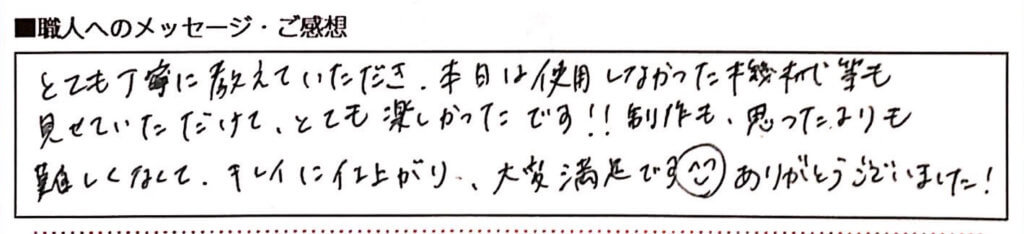 ■職人へのメッセージ・ご感想
とても丁寧に教えていただき、本日は使用しなかった機材等も
見せていただけて、とても楽しかったです!!制作も、思ったよりも
難しくなくて、キレイに仕上がり、大変満足です ありがとうございました!